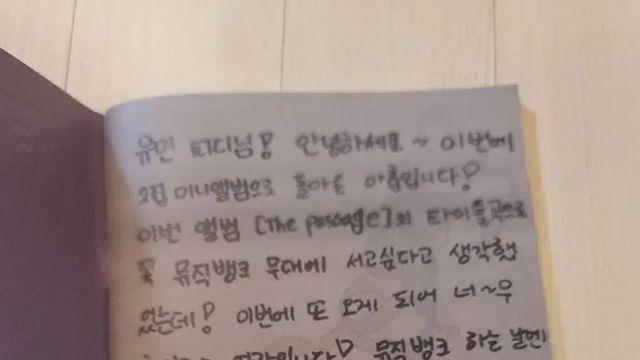 유민 피디님! 안녕하세요~ 이번에
2집 미니앨범으로 돌아온 아홉입니다!
이번 앨범 [The passage]의 타이틀곡으로
꼭 뮤직뱅크 무대에 서고싶다고 생각했
었는데! 이번에 또 오게 되어 너~무
뮤직뱅크 하는 날엔